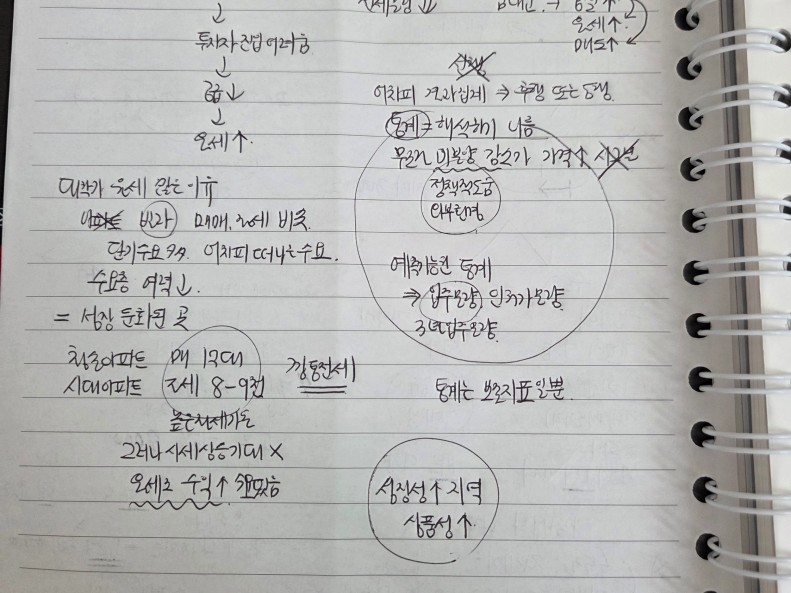 ↓
투자자 진입 어려움
↓
공급↓
↓
월세↑
월세↑
매도↑
대학가 월세 않는 이유
빌라 매매, 전세 비슷
단기수요 多 어차피 떠나는 수요.
수요층 여력↓.
= 성장 둔화된 곳
아파트 매 1억대
시대아파트 전세 8-9천
깡통전세
높은전세가율
그러나 시세상승기대 X
월세로 수익↑ 수요있음
선행
어차피 결과집계 ⇒ 후행 또는 동행.
통계 = 해석하기 나름
무조건 미분양 감소가 가격↑
정책적도움
외부환경
예측가능한 통계
⇒ 입주물량 인허가물량.
3년입주물량.
통계는 보조지표일뿐.
성장성↑ 지역
상품성↑